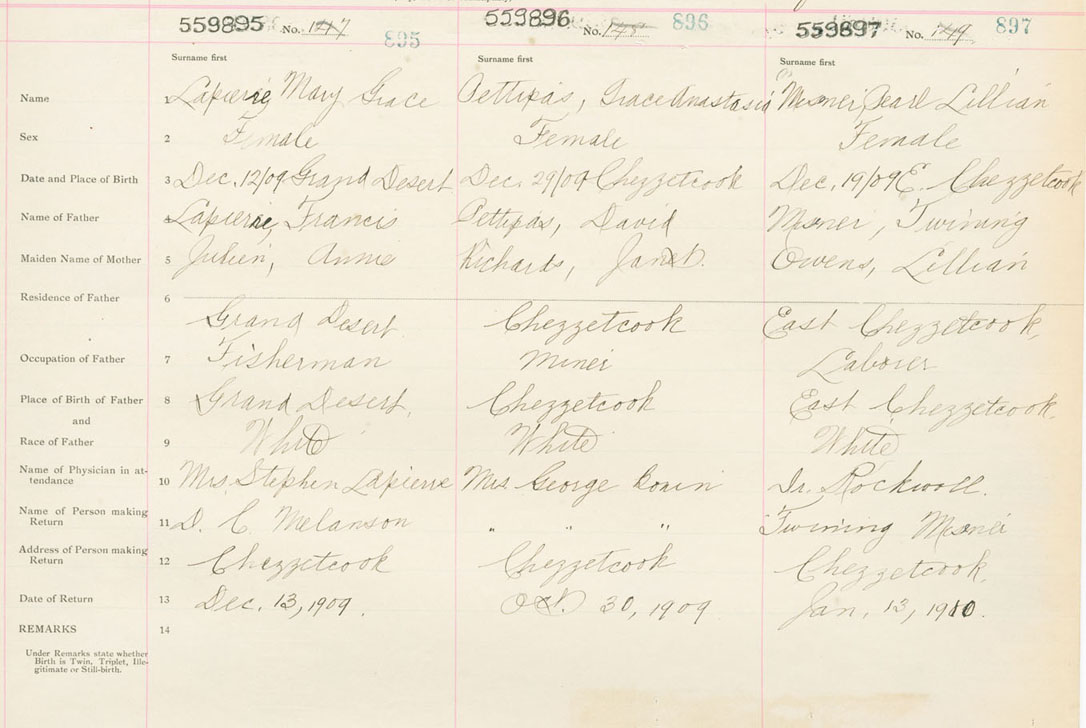 559895 No. 147 895
559896 No. 148 896
559897 No. 149 897
Surname first Surname first Surname first
Name 1 Lapierre, Mary Grace Pettipas, Grace Anastasia Misner Pearl Lillian
Sex 2 Female Female Female
Date and Place of Birth 3 Dec. 12/09 Grand Desert Dec. 29/09 Chezzetcook Dec. 19/09 E. Chezzetcook
Name of Father 4 Lapierre, Francis Pettipas, David Misner, Twining
Maiden Name of Mother 5 Julien, Annie Richards, Janet. Owens, Lillian
Residence of Father 6
Grand Desert Chezzetcook East Chezzetcook,
Occupation of Father 7 Fisherman Miner Laborer
Place of Birth of Father 8 Grand Desert, Chezzetcook East Chezzetcook.
and
Race of Father 9 White White White
Name of Physician in at-
tendance 10 Mrs. Stephen Lapierre Mrs. George Dr. Rockwell.
Name of Person making
Return 11 D. C. Melanson " " " Twining Misner
Address of Person making
Return 12 Chezzetcook Chezzetcook Chezzetcook,
Date of Return 13 Dec. 13, 1909. 30, 1909 Jan. 13, 1910.
REMARKS 14
Under Remarks state whether
Birth is Twin, Triplet, Ille-
gitimate or Still-birth.